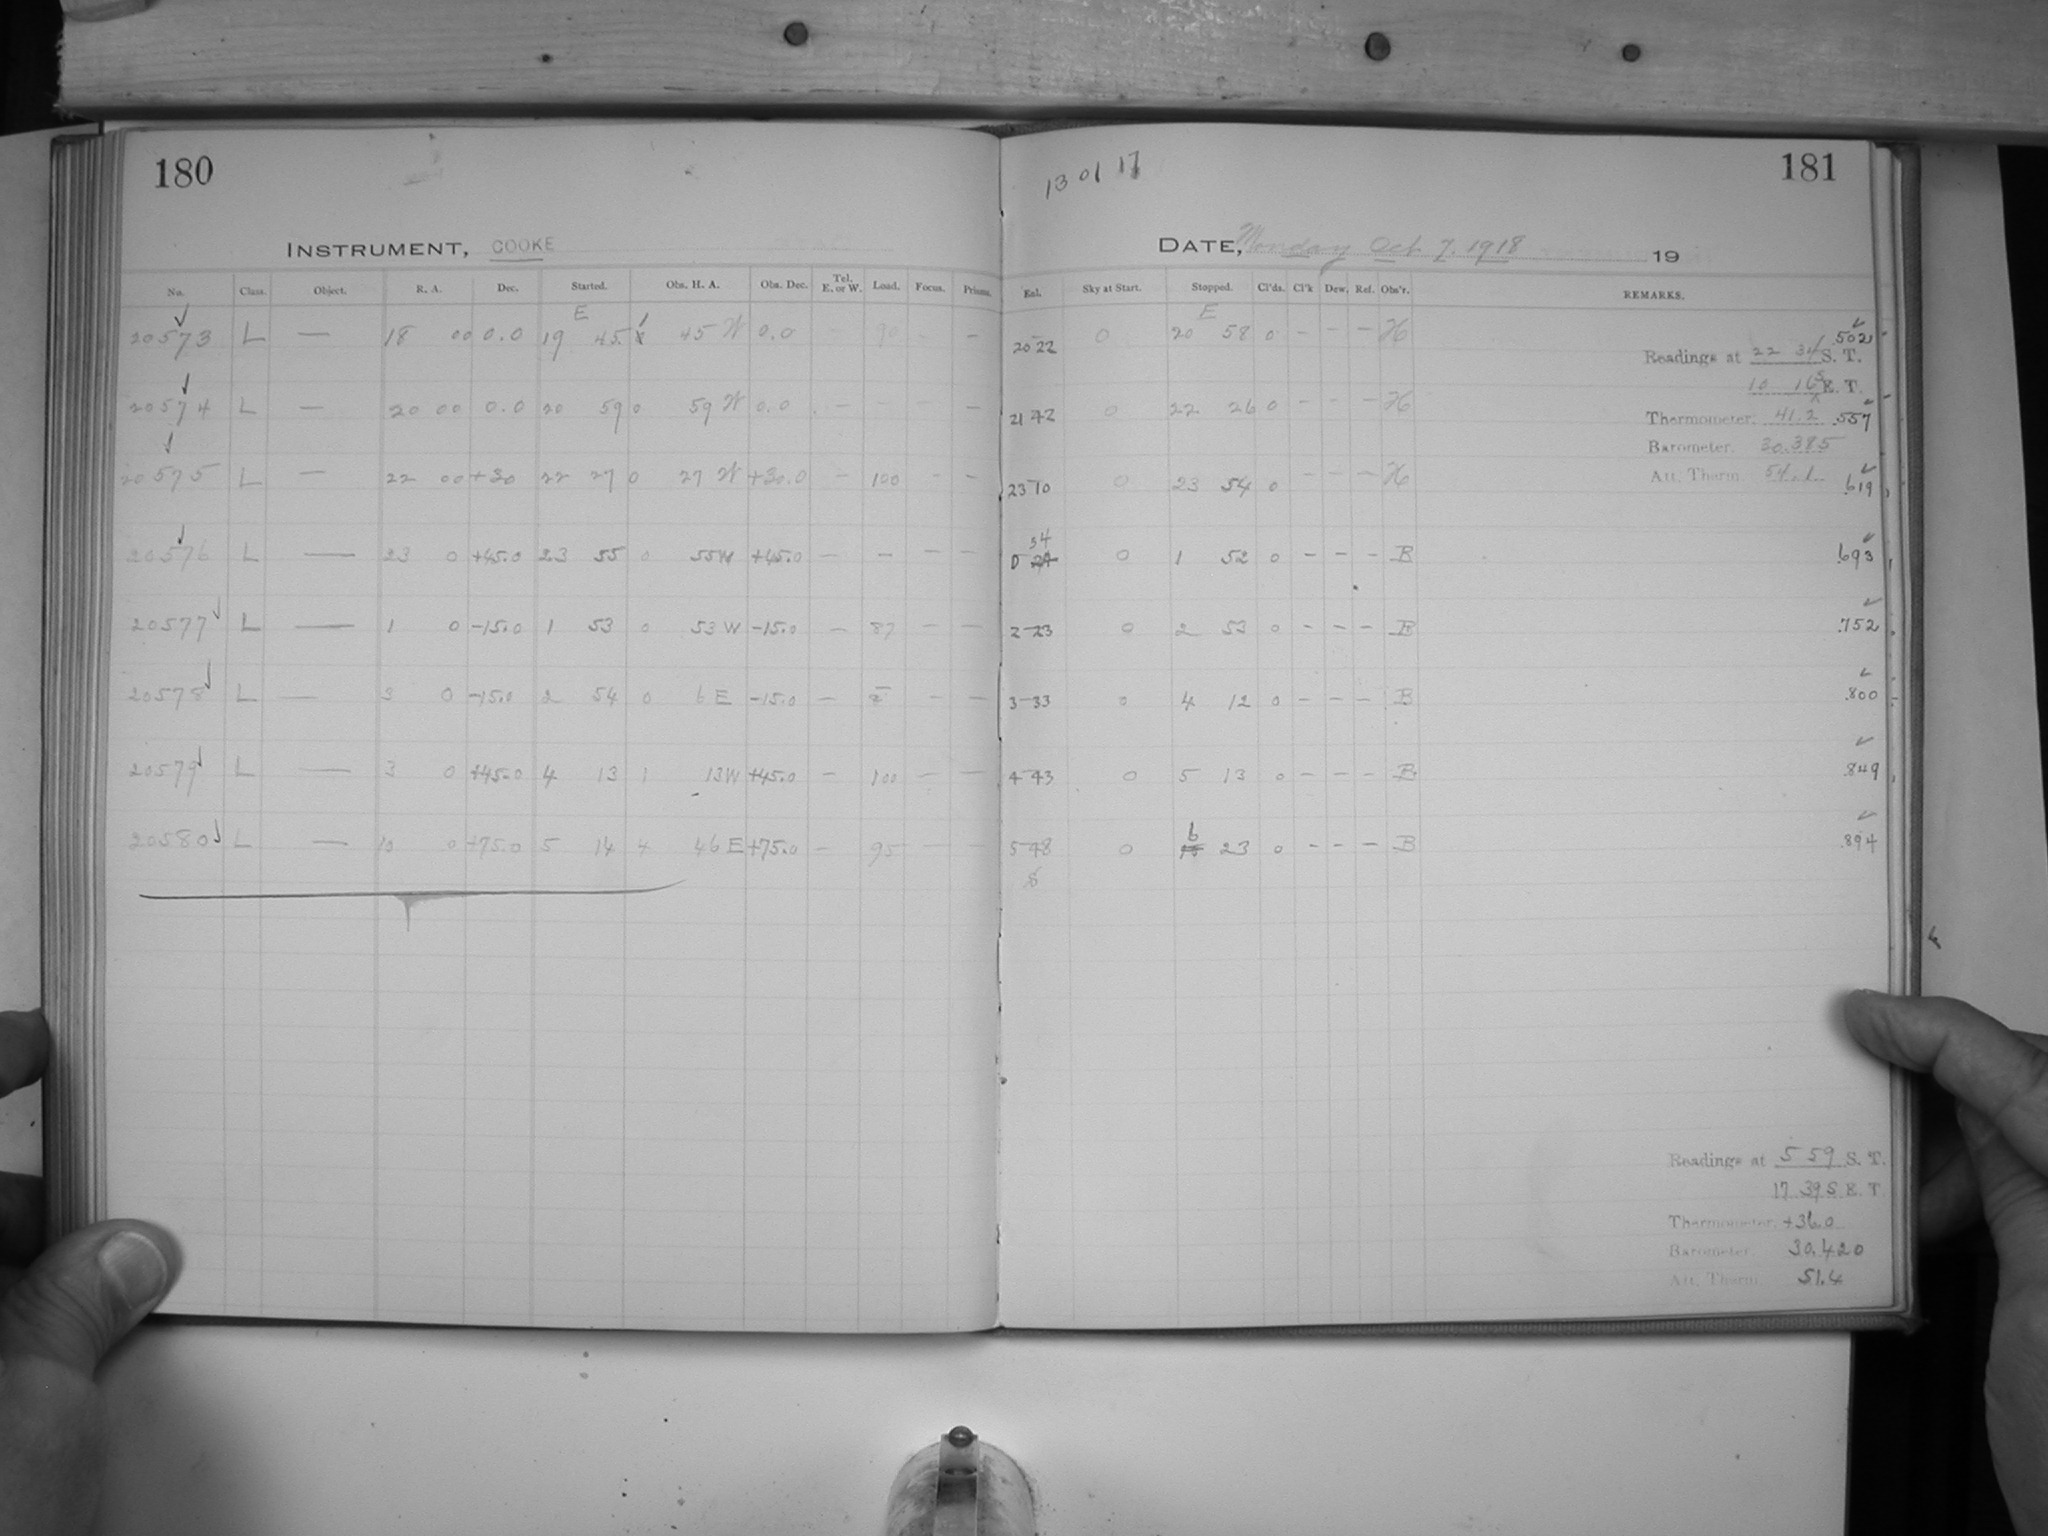 180
INSTRUMENT, COOKE
No. Class. Object. R. A. Dec. Started. Obs. H. A. Obs. Dec. Tel. E. or W. Load. Focus. Prisms.
E
20573 L — 18 00 0.0 19 45 1 45 W 0.0 90 – –
20574 L — 20 00 0.0 20 59 0 59 W 0.0 – – – –
20575 L — 22 00 +30 22 27 0 27 W +30.0 – 100 – –
20576 L — 23 0 +45.0 23 55 0 55 W +45.0 – – – –
20577 L — 1 0 -15.0 1 53 0 53 W -15.0 – 87 – –
20578 L — 3 0 -15.0 2 54 0 6 E -15.0 – – –
20579 L — 3 0 +45.0 4 13 1 13 W +45.0 – 100 – –
20580 L — 10 0 +75.0 5 14 4 46 E +75.0 – 95 – –
13 01 17
181
DATE, Monday Oct 7. 1918 19
Enl. Sky at Start. Stopped. Cl'ds. Cl'k Dew. Ref. Obs'r. REMARKS.
E
20-22 0 20 58 0 – – – H .502
Readings at 22 31 S. T.
10 16 S E. T.
21-42 0 22 26 0 – – – H .557
Thermometer. 41.2
Barometer. 30.385
Att. Therm. 54.1
23-10 0 23 54 0 – – – H .619
54
0 0 1 52 0 – – – B .693
2-23 0 2 53 0 – – – B .752
3-33 0 4 12 0 – – – B .800
4-43 0 5 13 0 – – – B .849
5-48 0 6 23 0 – – – B .894
Readings at 5 59 S. T.
17 39 S E. T.
Thermometer. +36.0
Barometer 30.420
Att. Therm. 51.4